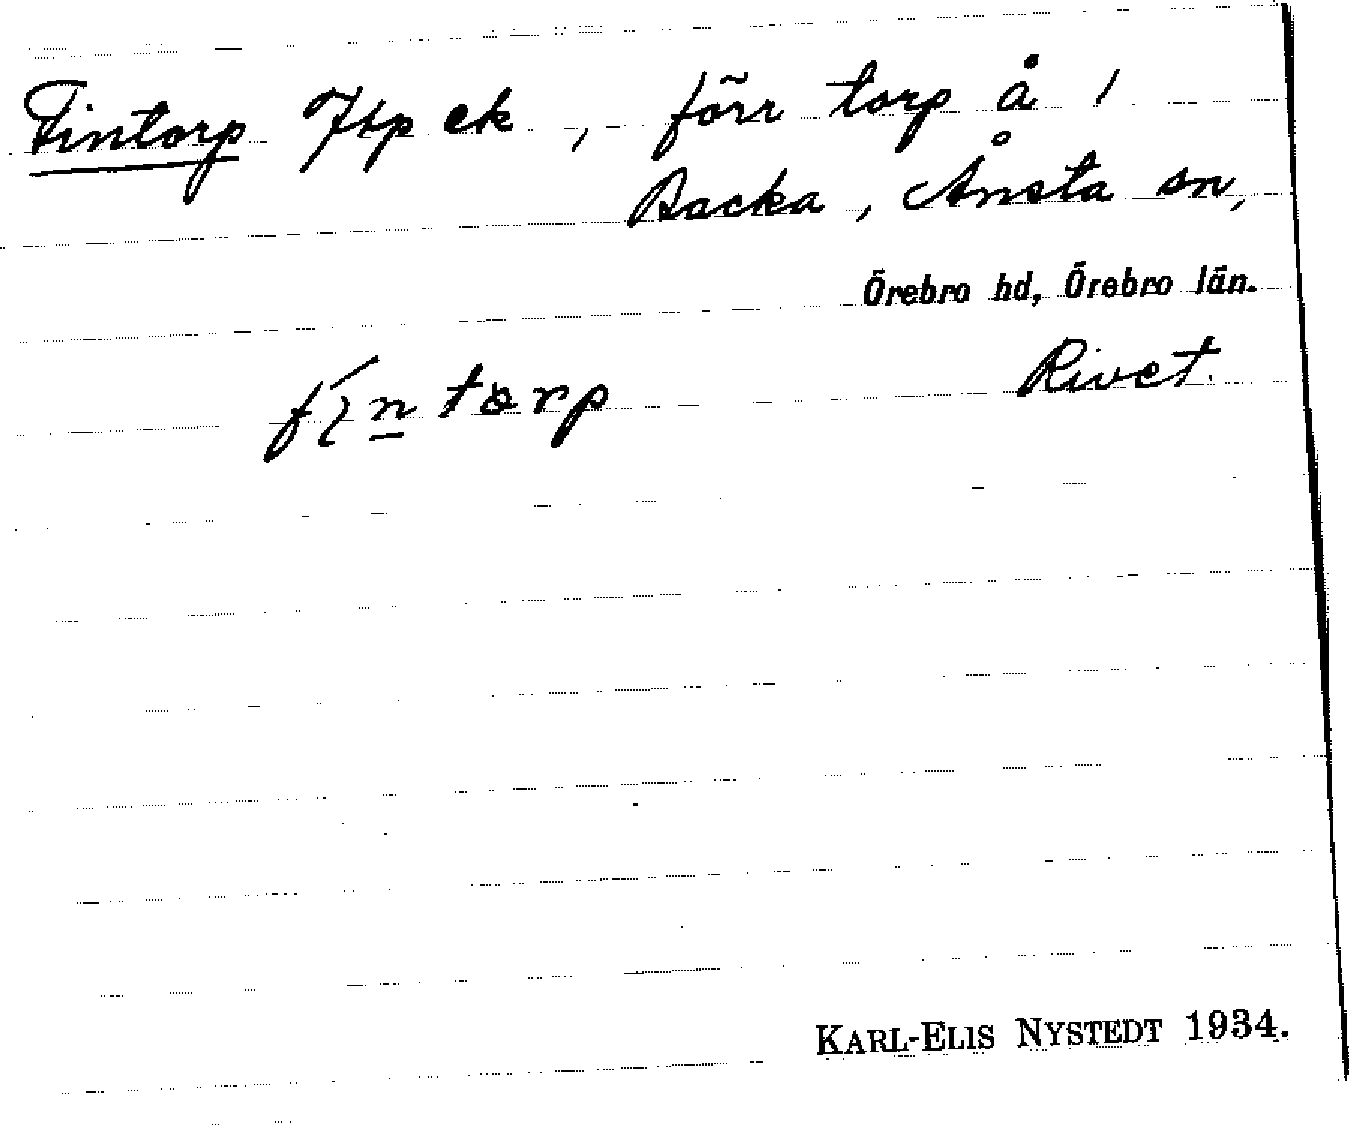 Fintorp Jbp ek, förr torp å 1
Backa, Ånsta sn,
Örebro hd, Örebro län.
Rivet.
fintorp
KARL-ELIS NYSTEDT 1934.